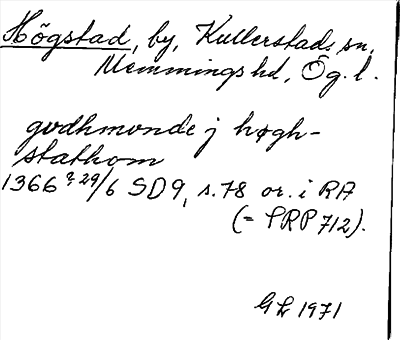 Högstad, by, Kullerstads sn,
Memmings hd, Ög. l.
gudhmunde j høgh-
stathom
1366 ? 29/6 SD 9, s. 78 or. i RA
(= SRP 712).
GL 1971